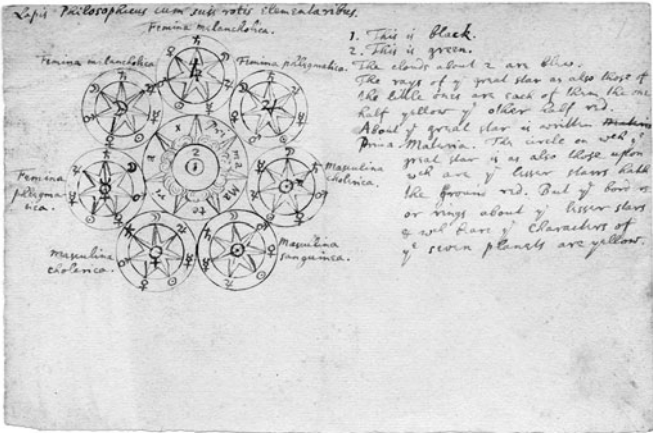 Lapis Philosophicus cum suis rotis elementaribus.
Femina melancholica.
Femina melancholica.
Femina phlegmatica.
Femina
phlegma-
tica.
Masculina
cholerica.
Masculina
cholerica.
Masculina
sanguinea.
Pri ma Ma te ri a
2
1
1. This is black.
2. This is green.
The clouds about 2 are blew.
The rays of yᵉ great star as also those of
the little ones are each of them the one
half yellow yᵉ other half red.
About yᵉ great star is written
Prima Materia. The circle on wᶜʰ yᵉ
great star is as also those upon
wᶜʰ are yᵉ lesser starrs hath
the ground red. But yᵉ
or rings about yᵉ lesser stars
& wᶜʰ bare yᵉ characters of
yᵉ seven planets are yellow.